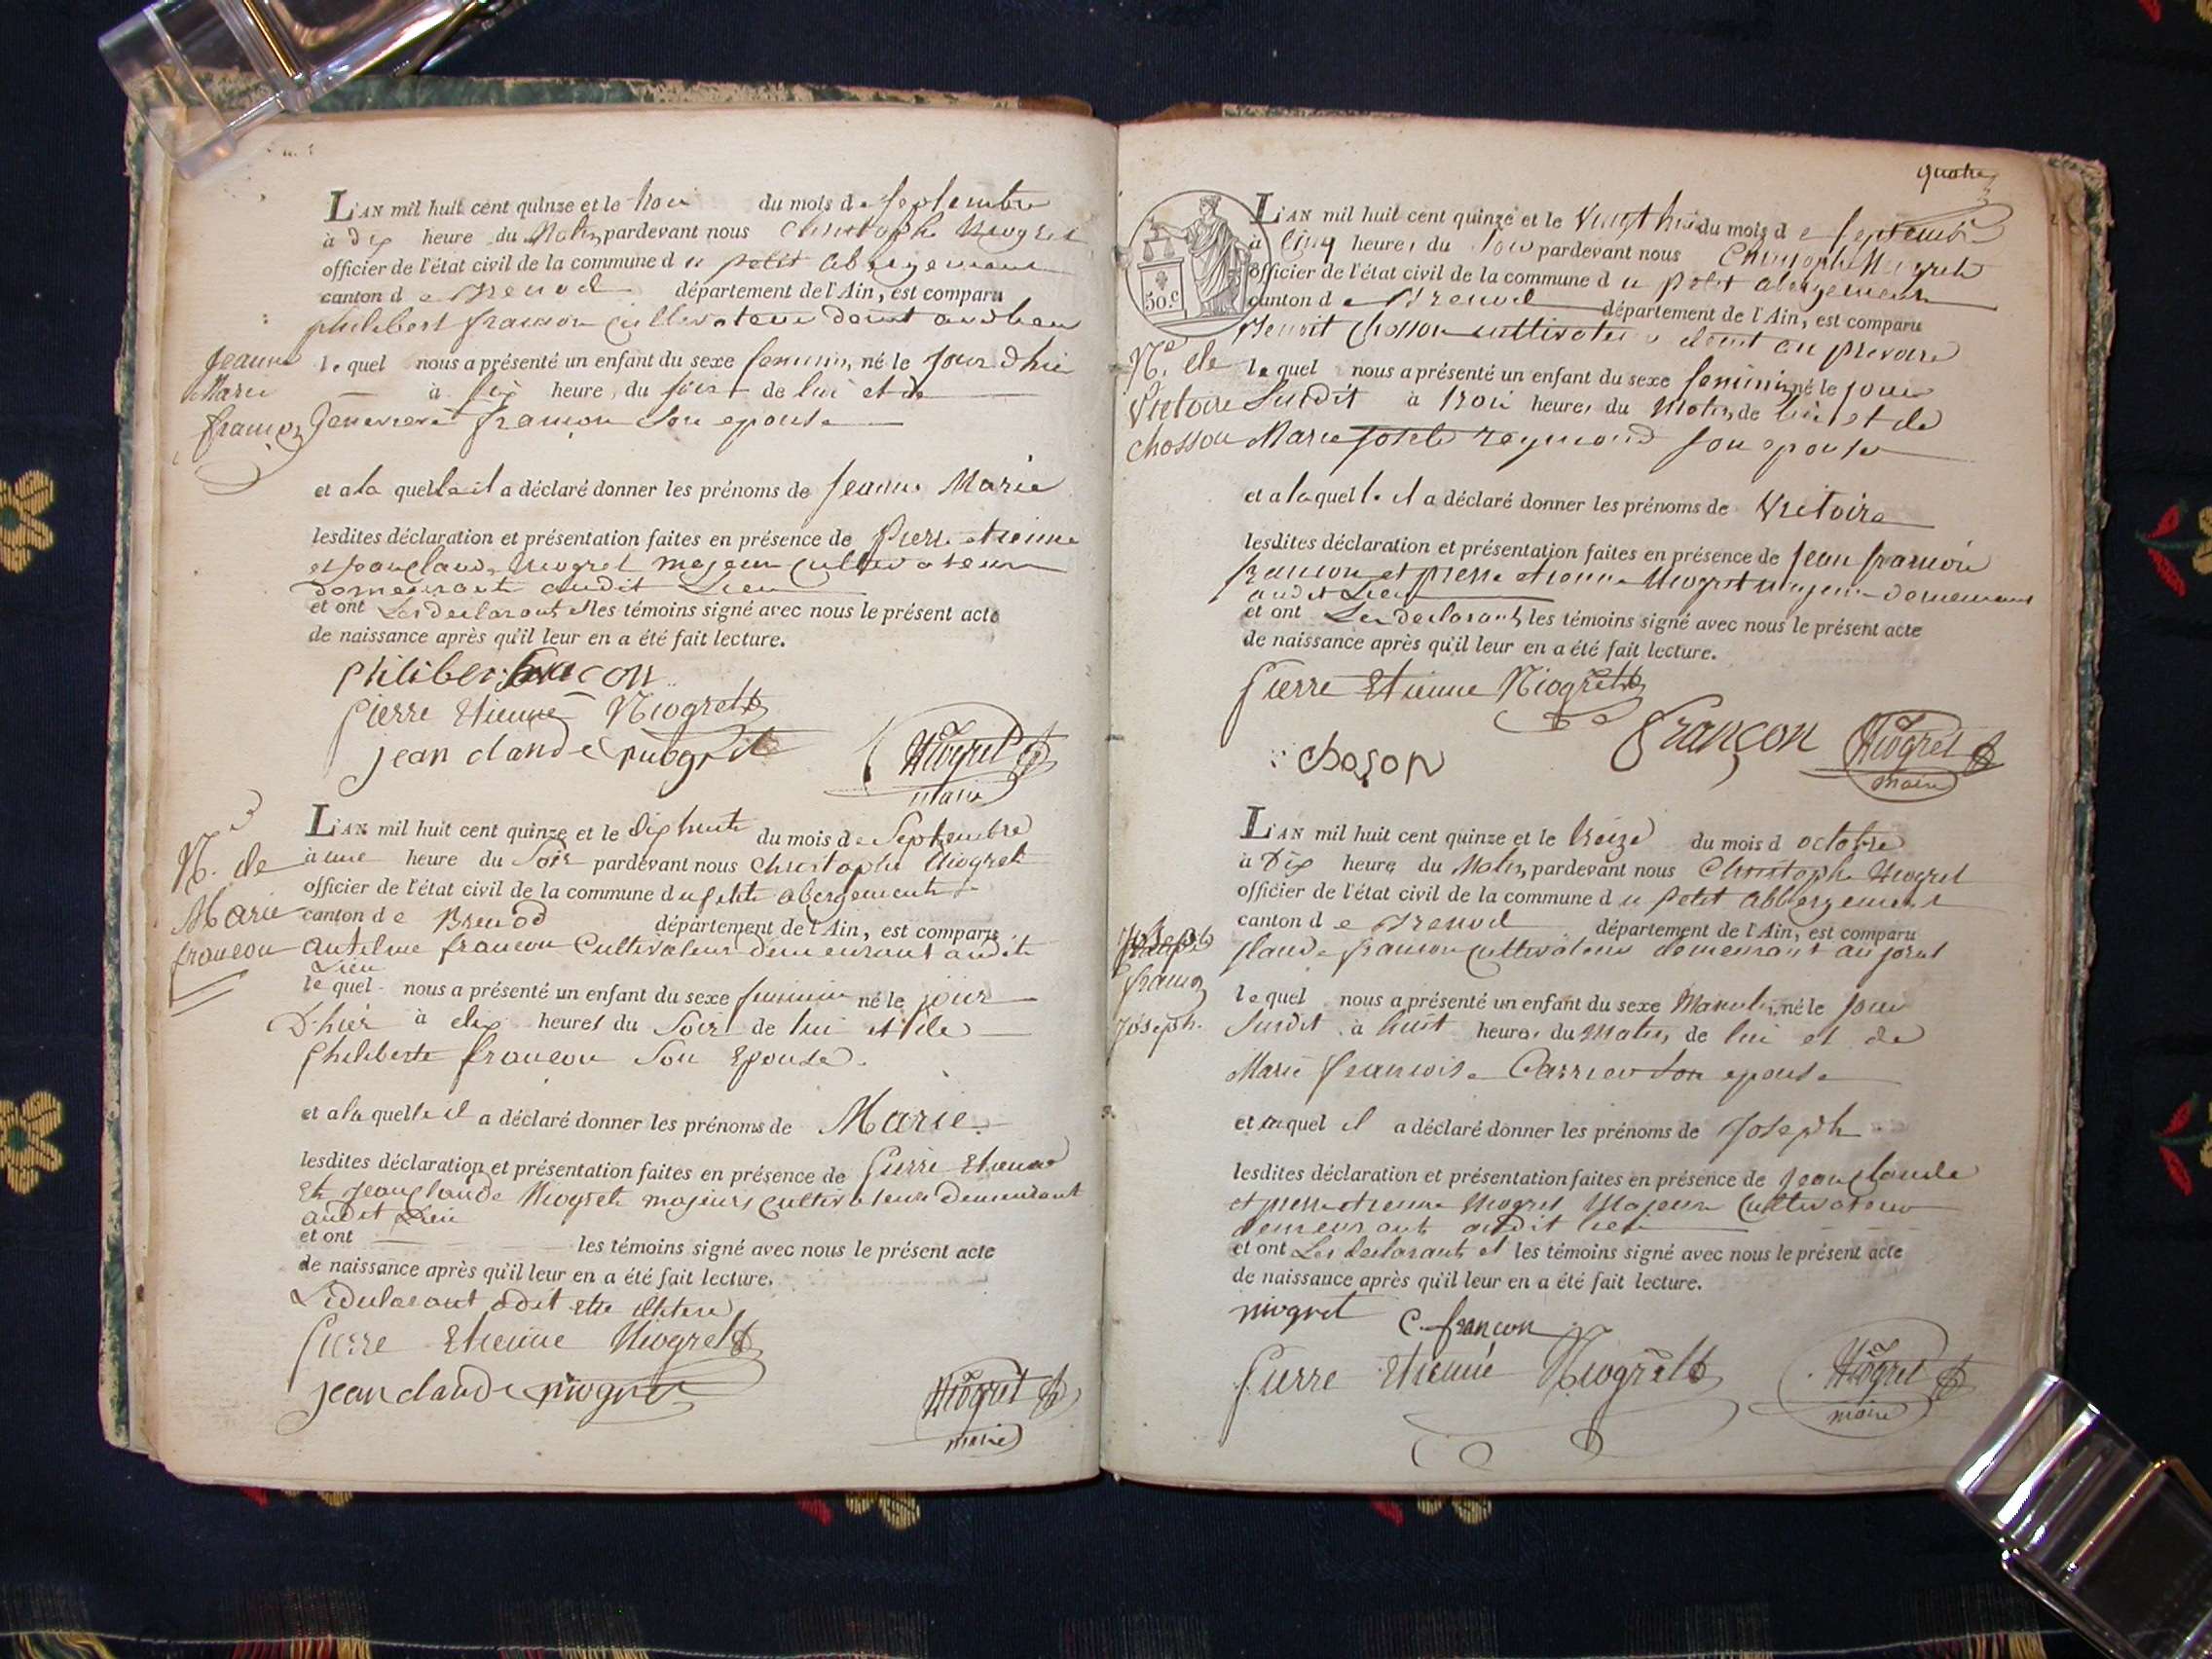 L'AN mil huit cent quinze et le trois du mois de septembre
à dix heure du Matin pardevant nous Christophe Niogret
officier de l'état civil de la commune du petit abergement
canton de Brenod département de l'Ain, est comparu
philibert francon Cultivateur audit lieu
Jeanne
Marie
francon
le quel nous a présenté un enfant du sexe feminin, né le jour d'hier
à six heure, du soir de lui et de
Genevieve francon son epouse
et a la quelle il a déclaré donner les prénoms de Jeanne Marie
lesdites déclaration et présentation faites en présence de pierre etienne
et jean claude Niogret majeur Cultivateurs
demeurant audit Lieu
et ont Les declarant et les témoins signé avec nous le présent acte
de naissance après qu'il leur en a été fait lecture.
philiber francon
pierre Etienne Niogret
jean claude niogret
Niogret
maire
N. de
Marie
francon
L'AN mil huit cent quinze et le dix huit du mois de Septembre
à une heure du Soir pardevant nous Christophe Niogret
officier de l'état civil de la commune du petit abergement
canton de Brenod département de l'Ain, est comparu
antelme francon Cultivateur demeurant audit
Lieu
le quel nous a présenté un enfant du sexe feminin né le jour
D'hier à dix heures du Soir de lui et de
philiberte francon Son Epouse.
et a la quelle il a déclaré donner les prénoms de Marie
lesdites déclaration et présentation faites en présence de pierre Etienne
Et Jean claude Niogret majeurs Cultivateurs Demeurant
audit Lieu
et ont les témoins signé avec nous le présent acte
de naissance après qu'il leur en a été fait lecture.
Le declarant a dit etre illitere
pierre Etienne Niogret
jean claude niogret
Niogret
maire
quatre
50 c
L'AN mil huit cent quinze et le vingt huit du mois de septembre
à cinq heures du Soir pardevant nous Christophe Niogret
officier de l'état civil de la commune du petit abergement
canton de Brenod département de l'Ain, est comparu
Benoit Chosson cultivateur
N.ce de
Victoire
chosson
le quel nous a présenté un enfant du sexe feminin né le jour
Susdit à trois heures du Matin, de lui et de
Marie Josephe reymond son epouse
et a la quelle il a déclaré donner les prénoms de Victoire
lesdites déclaration et présentation faites en présence de Jean francois
francon et pierre etienne Niogret majeur demeurant
audit Lieu
et ont Les declarant, les témoins signé avec nous le présent acte
de naissance après qu'il leur en a été fait lecture.
pierre Etienne Niogret
françon
choson
Niogret
maire
L'AN mil huit cent quinze et le treize du mois d octobre
à Dix heure du Matin, pardevant nous Christophe Niogret
officier de l'état civil de la commune du petit abbergement
canton de Brenod département de l'Ain, est comparu
Claude francon Cultivateur demeurant au jorat
francon
Joseph.
le quel nous a présenté un enfant du sexe Masculin, né le jour
Susdit à huit heure, du Matin, de lui et de
Marie francoise Carrier son epouse
et au quel il a déclaré donner les prénoms de Joseph
lesdites déclaration et présentation faites en présence de jean claude
et pierre etienne Niogret Majeur Cultivateurs
demeurant audit lieu
et ont Les declarant et les témoins signé avec nous le présent acte
de naissance après qu'il leur en a été fait lecture.
niogret
C. francon
pierre Etienne Niogret
Niogret
maire